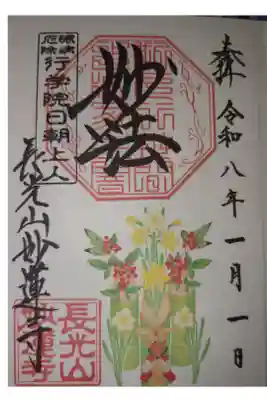 奉拝
令和八年一月一日
妙法
眼病
厄除
行学院日朝上人
長光山妙蓮寺
長光山
妙蓮寺